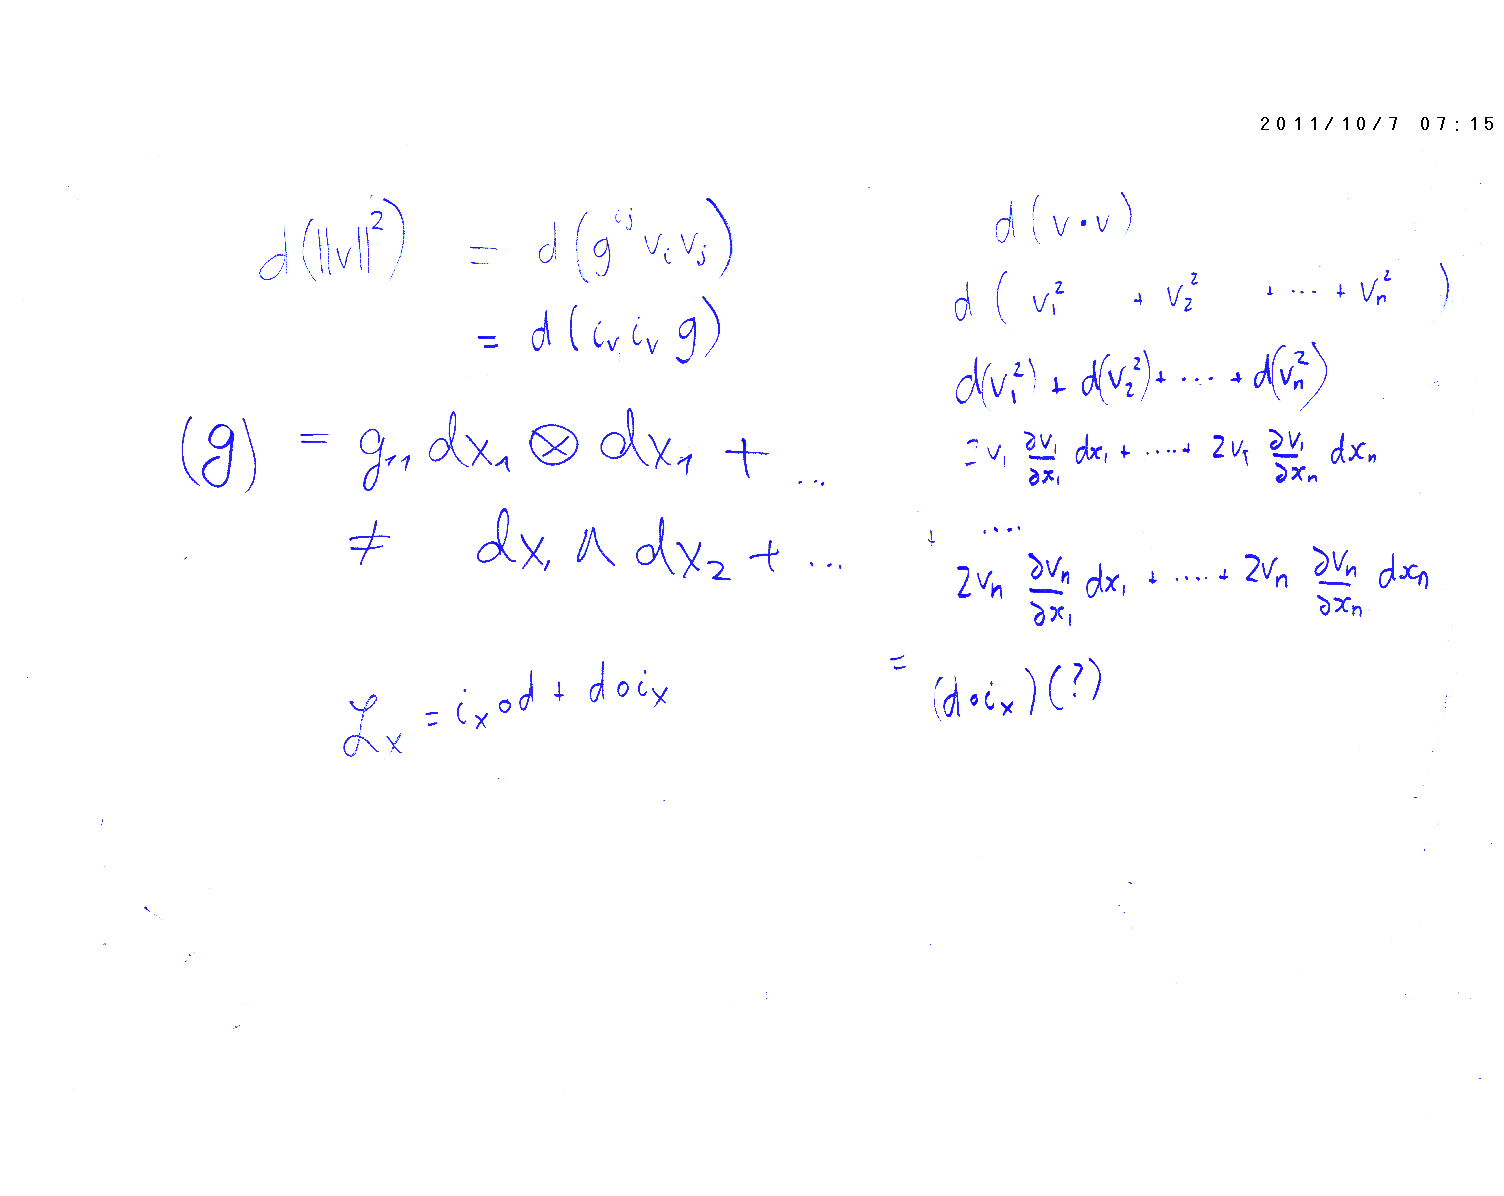 2011/10/7 07:15
d(||v||²) = d(g^{ij} v_i v_j)
= d(i_v i_v g)
(g) = g₁₁ dx₁ ⊗ dx₁ + ...
≠ dx₁ ∧ dx₂ + ...
ℒ_x = i_x∘d + d∘i_x
d(v•v)
d( v₁² + v₂² + ... + v_n² )
d(v₁²) + d(v₂²) + .... + d(v_n²)
= v₁ ∂v₁/∂x₁ dx₁ + ....+ 2v₁ ∂v₁/∂x_n dx_n
+ ....
2v_n ∂v_n/∂x₁ dx₁ + ....+ 2v_n ∂v_n/∂x_n dx_n
= (d∘i_x)(?)